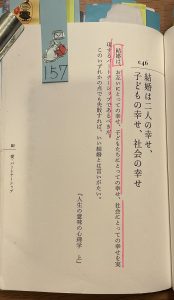 157
046
結婚は二人の幸せ、
子どもの幸せ、社会の幸せ
結婚は、お互いにとっての幸せ、子どもたちにとっての幸せ、社会にとっての幸せを実
現するパートナーシップであるべきだ。
このいずれかの点でも失敗すれば、いい結婚とは言いがたい。
『人生の意味の心理学 上』
愛 パートナーシップ